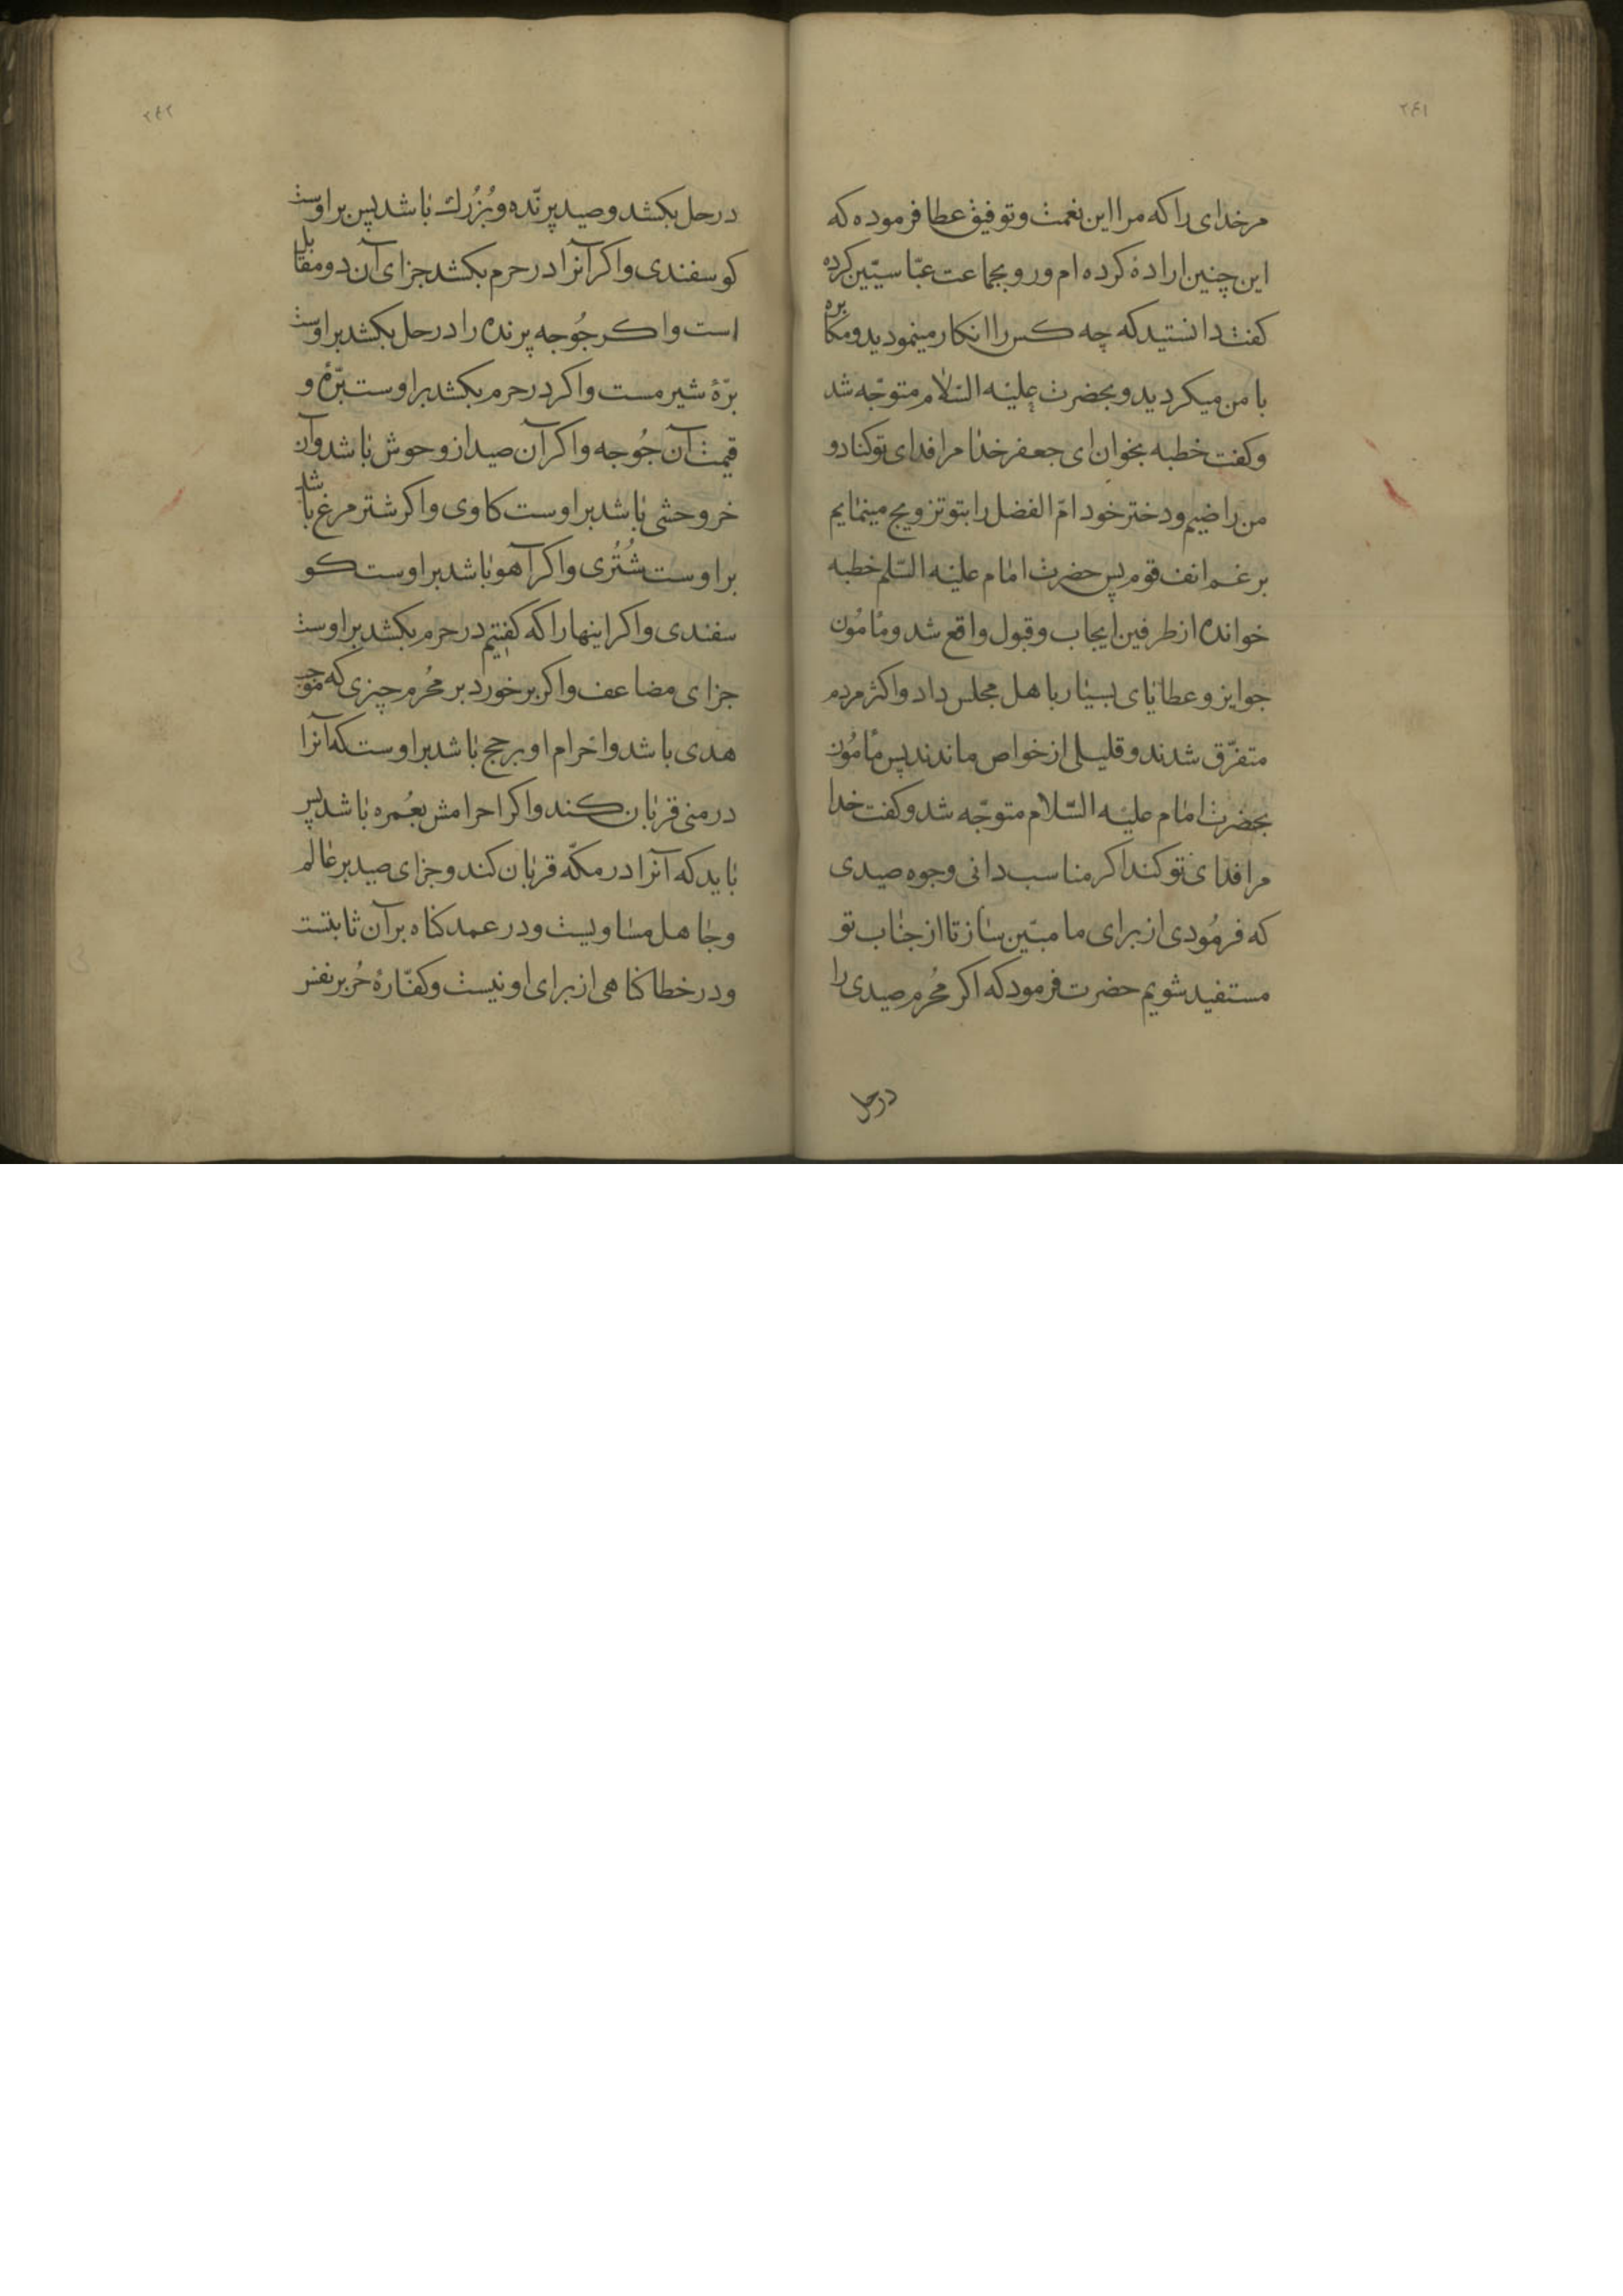 ٢٤١
مر خدای را که مرا این نعمت و توفیق عطا فرموده که
این چنین اراده کرده ام و رو بجماعت عبّاسیّین کرده
کفت دانستید که چه کس را انکار مینمودید و مکابره
با من میکردید و بحضرت علیه السّلام متوجّه شد
و کفت خطبه بخوان ای جعفر خدا مرا فدای تو کناد و
من راضیم و دختر خود امّ الفضل را بتو تزویج مینمایم
بر غم انف قوم پس حضرت امام علیه السّلم خطبه
خوانده از طرفین ایجاب و قبول واقع شد و مأمُون
جوایز و عطایای بسیار باهل مجلس داد و اکثر مردم
متفرّق شدند و قلیلی از خواص ماندند پس مأمُون
بحضرت امام علیه السّلام متوجّه شد و کفت خدا
مرا فدای تو کند اکر مناسب دانی وجوه صیدی
که فرمُودی از برای ما مبیّن ساز تا از جناب تو
مستفید شویم حضرت فرمود که اکر مُحرم صیدی را
در حل
٢٤٢
در حل بکشد و صید پرنّده و بُزُرك باشد پس بر اوست
کوسفندی و اکر آنرا در حرم بکشد جزای آن دو مقابل
است و اکر جُوجه پرنده را در حل بکشد بر اوست
برّهٔ شیر مست و اکر در حرم بکشد بر اوست برّهٔ و
قیمت آن جُوجه و اکر آن صید از وحوش باشد و آن
خر وحشی باشد بر اوست کاوی و اکر شتر مرغ باشد
بر اوست شُتُری و اکر آهو باشد بر اوست کو
سفندی و اکر اینها را که کفتیم در حرم بکشد بر اوست
جزای مضاعف و اکر بر خورد بر مُحرم چیزی که موجب
هدی باشد و احرام او بر حج باشد بر اوست که آنرا
در منی قربان کند و اکر احرامش بعُمره باشد پس
باید که آنرا در مکّه قربان کند و جزای صید بر عالم
و جاهل مساویست و در عمد کناه بر آن ثابتست
و در خطا کناهی از برای او نیست و کفّارهٔ حُر بر نفس